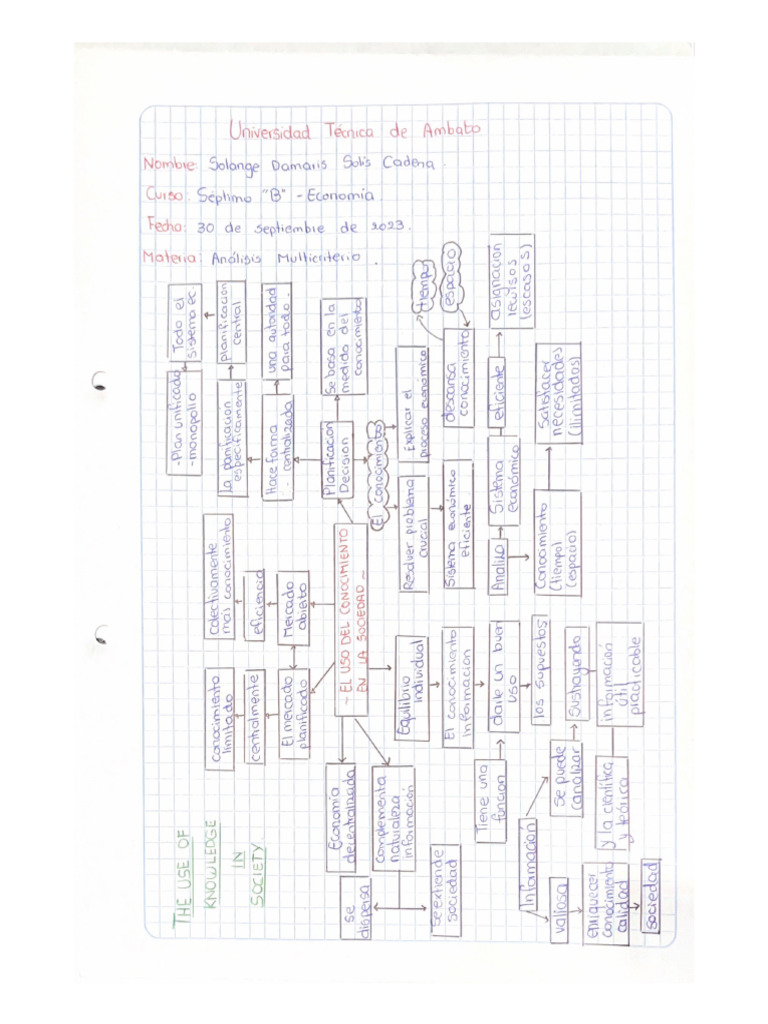 Universidad Técnica de Ambato
Nombre: Solange Damaris Solis Cadena.
Curso: Séptimo "B" - Economía.
Fecha: 30 de septiembre de 2023.
Materia: Análisis Multicriterio.
THE USE OF
KNOWLEDGE
IN
SOCIETY.
~ EL USO DEL CONOCIMIENTO
EN LA SOCIEDAD ~
conocimiento
limitado
centralmente
El mercado
planificado
colectivamente
más conocimiento
eficiencia
Mercado
abierto
-Plan unificado
-monopolio
Todo el
sistema ec.
La panificacion
especificamente
planificacion
central
Hace forma
centralizada
una autoridad
para todo.
Planificacion
Decision
Se basa en la
medida del
conocimiento
El conocimientos
Resolver problema
crucial
Sistema económico
eficiente
Explicar el
proceso económico
descansa
conocimiento
tiempo
espacio
Analiza
Sistema
económico
eficiente
asignacion
recursos
(escasos)
Conocimiento
(tiempo)
(espacio)
Satisfacer
necesidades
(ilimitadas)
Economía
decentralizada
complementa
naturaleza
información
se
dispersa
Se extiende
sociedad
Equilibrio
individual
El conocimiento
informacion
Tiene una
funcion
darle un buen
uso
los supuestos
Información
se puede
canalizar
Sustrayendo
información
útil
practicable
y la científica
y teórica
valiosa
enriquecer
conocimiento
calidad
sociedad